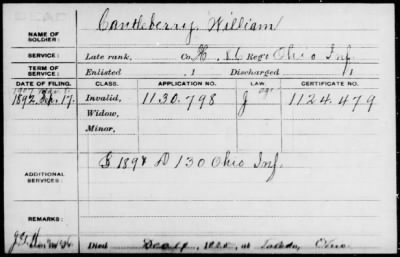 NAME OF SOLDIER: Cantleberry, William
SERVICE: Late rank, Co. H, 86 Reg't Ohio Inf.
TERM OF SERVICE: Enlisted , 1 Discharged , 1
DATE OF FILING. CLASS. APPLICATION NO. LAW CERTIFICATE NO.
1907
1892, Sep. 17. Invalid, 1130.798 J age 1124.479
Widow,
Minor,
ADDITIONAL SERVICES: 130 Ohio Inf.
REMARKS:
Died at Toledo, Ohio